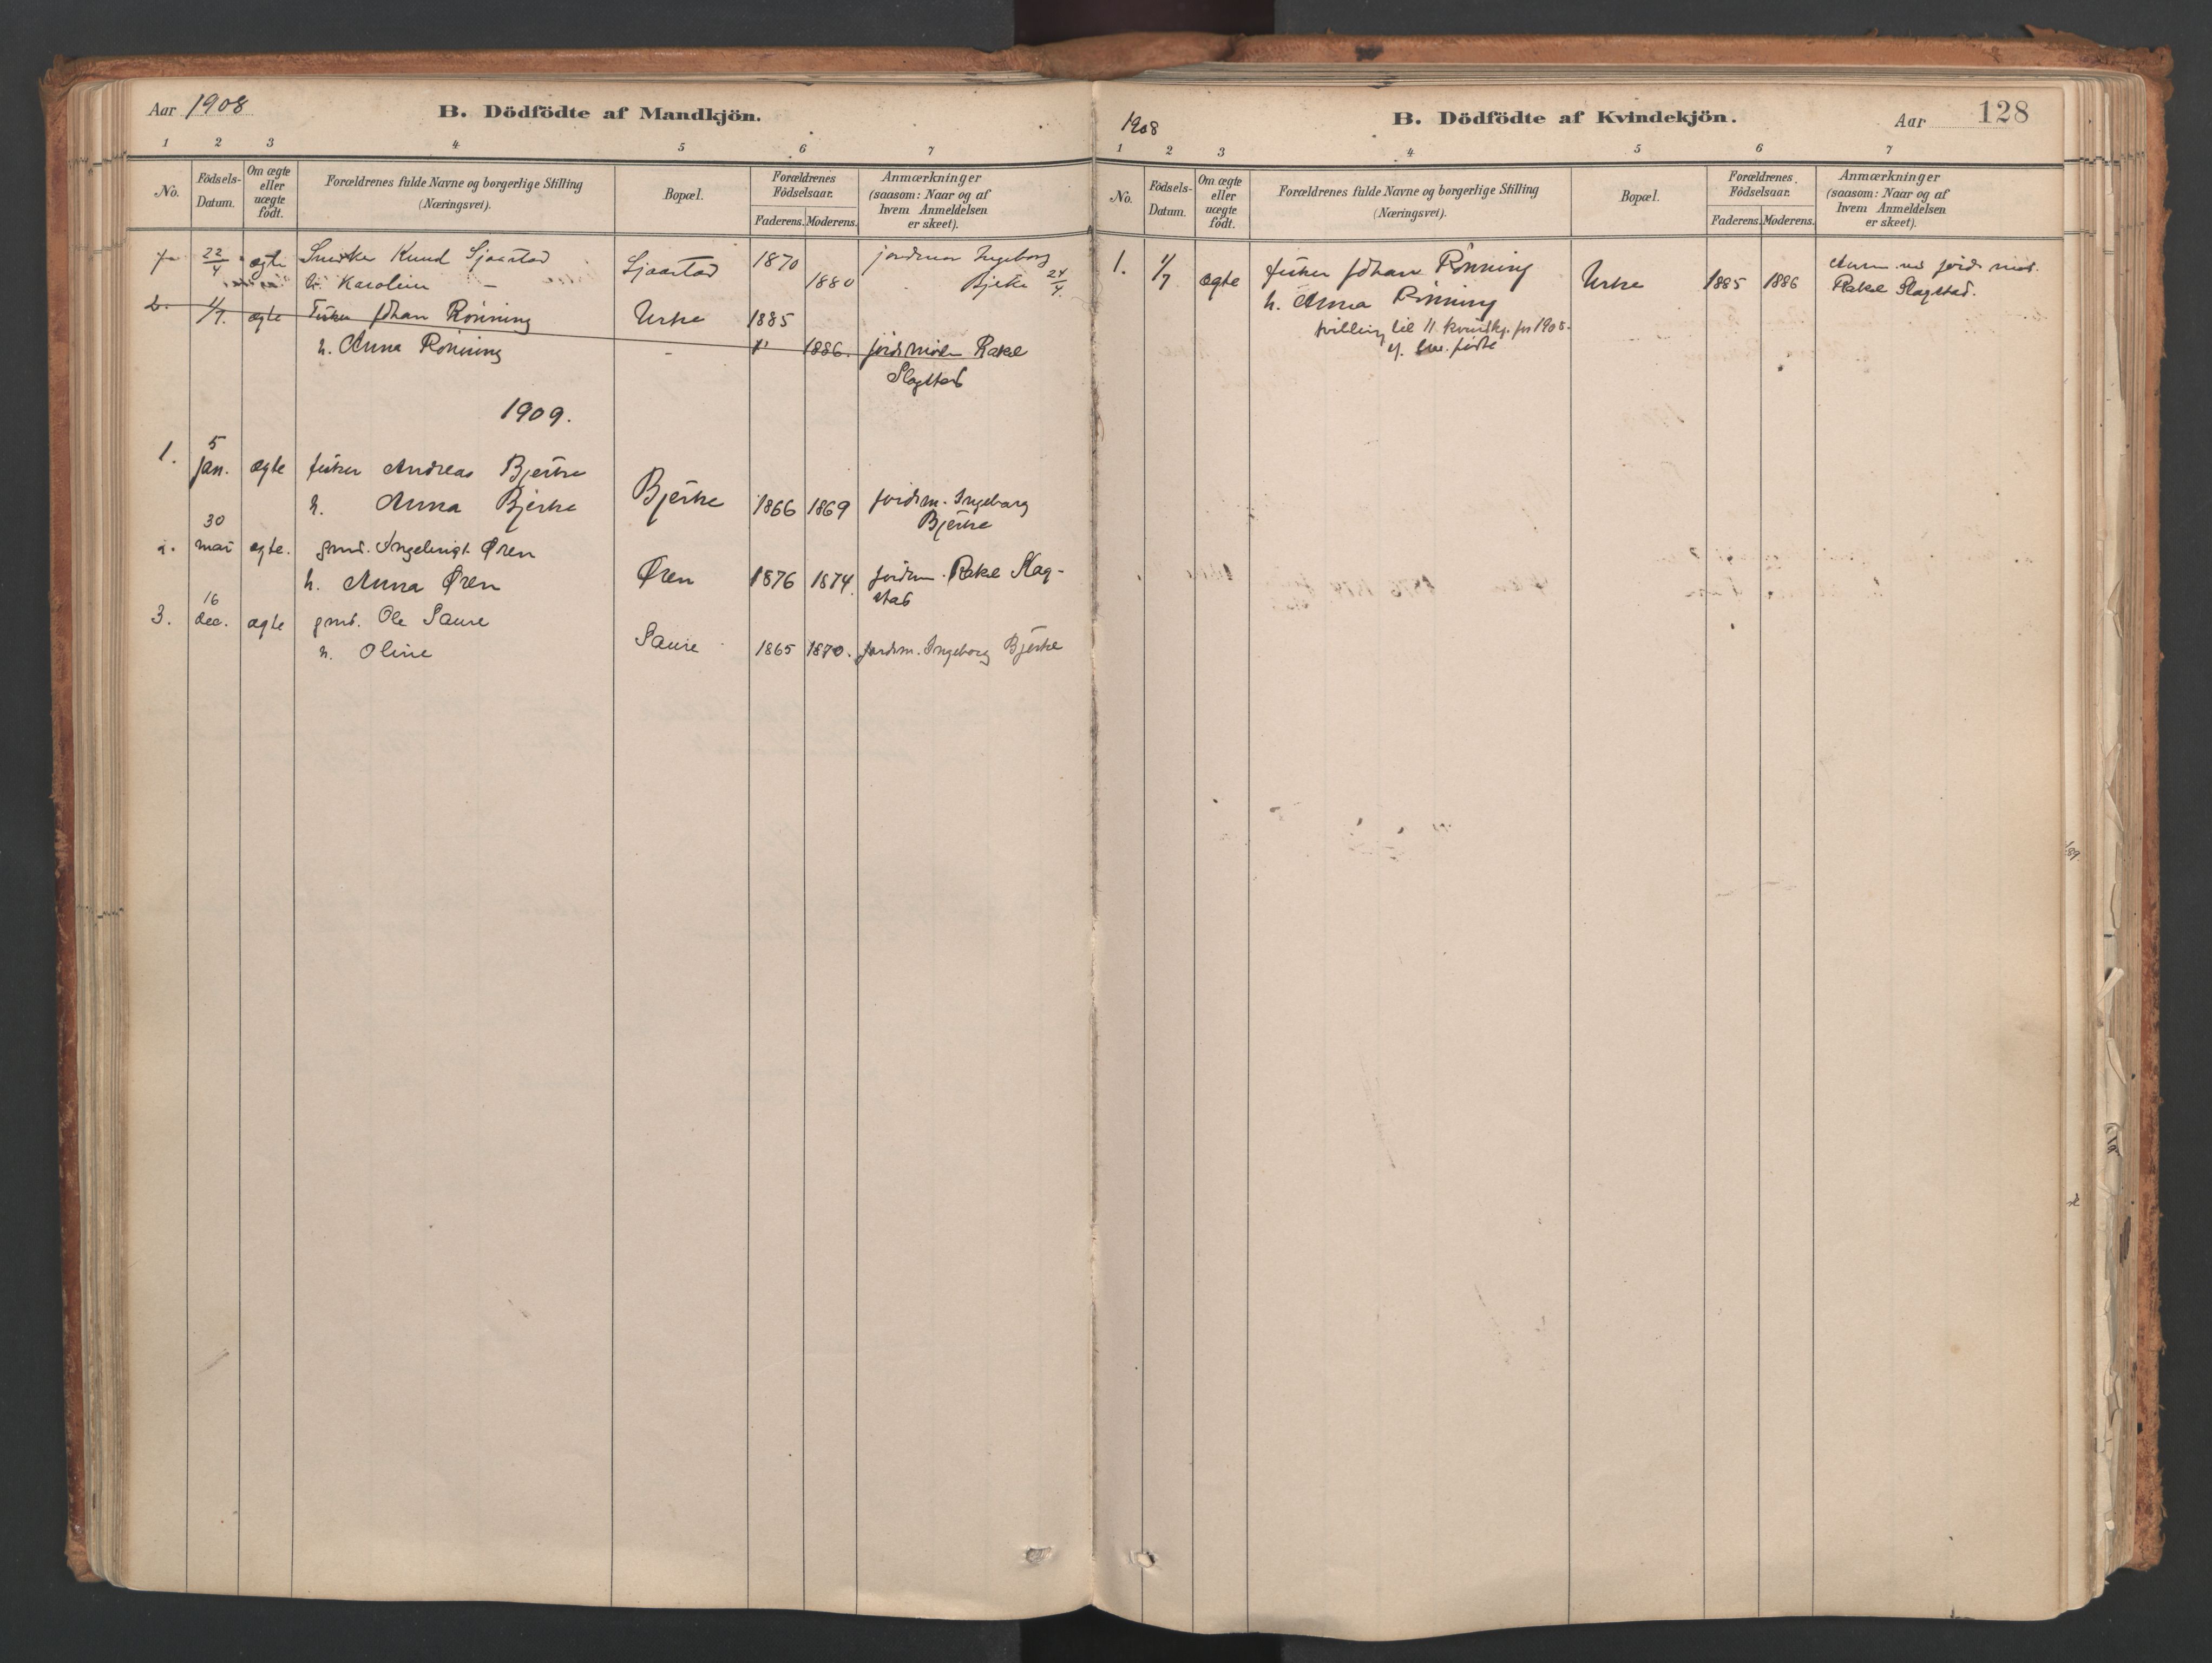 Aar 1908
B. Dödfödte af Mandkjön.
1 2 3 4 5 6 7
No.
Födsels-
Datum.
Om ægte
eller
uægte
födt.
Forældrenes fulde Navne og borgerlige Stilling
(Næringsvei).
Bopæl.
Forældrenes
Födselsaar.
Faderens. Moderens.
Anmærkninger
(saasom: Naar og af
hvem Anmeldelsen
er skeet).
22/4 ægte Snedker Knud Sjaastad Sjaastad 1870 jordmor Ingeborg
h. Karoline — 1880 Bjerke 24/4.
2. 1/7. ægte Fisker Johan Rönning Urke 1885
h. Anna Rönning - " 1886. jordmoder Rakel
Slagstad
1909.
1. 5 jan. ægte fisker Andreas Bjerke
h. Anna Bjerke Bjerke 1866 1869 jordm. Ingeborg
Bjerke
2. 30 mai ægte. gmd. Ingebrigt Øren
h. Anna Øren Øren 1876 1874. jordm. Rakel Slag-
stad
3. 16 dec. ægte gmd. Ole Saure
h. Oline Saure 1865 1870. jordm. Ingeborg Bjerke
1908
B. Dödfödte af Kvindekjön.
Aar 128
1 2 3 4 5 6 7
No.
Födsels-
Datum.
Om ægte
eller
uægte
födt.
Forældrenes fulde Navne og borgerlige Stilling
(Næringsvei).
Bopæl.
Forældrenes
Födselsaar.
Faderens. Moderens.
Anmærkninger
(saasom: Naar og af
hvem Anmeldelsen
er skeet).
1. 1/7 ægte fisker Johan Rönning Urke 1885 1886 Anm. ved jordmod.
h. Anna Rönning Rakel Slagstad.
tvilling til 11 kvindkj. for 1908.
af lev. fødte